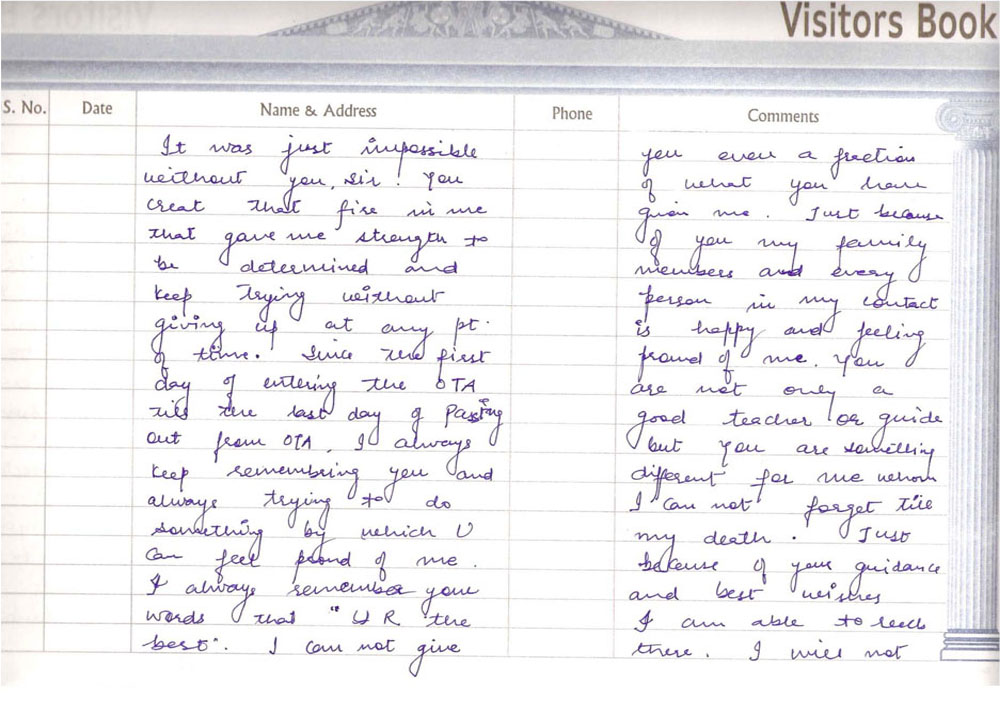 Visitors Book
S. No. Date Name & Address Phone Comments
It was just impossible
without you, sir! You
creat that fire in me
that gave me strength to
be determined and
keep trying without
giving up at any pt.
of time. Since the first
day of entering the OTA
till the last day of Passing
out from OTA, I always
keep remembring you and
always trying to do
something by which U
can feel proud of me.
I always remember your
words that "U R the
best". I can not give
you even a fraction
of what you have
given me. Just because
of you my family
members and every
person in my contact
is happy and feeling
proud of me. You
are not only a
good teacher or guide
but you are something
different for me whom
I can not forget till
my death. Just
because of your guidance
and best wishes
I am able to reach
there. I will not